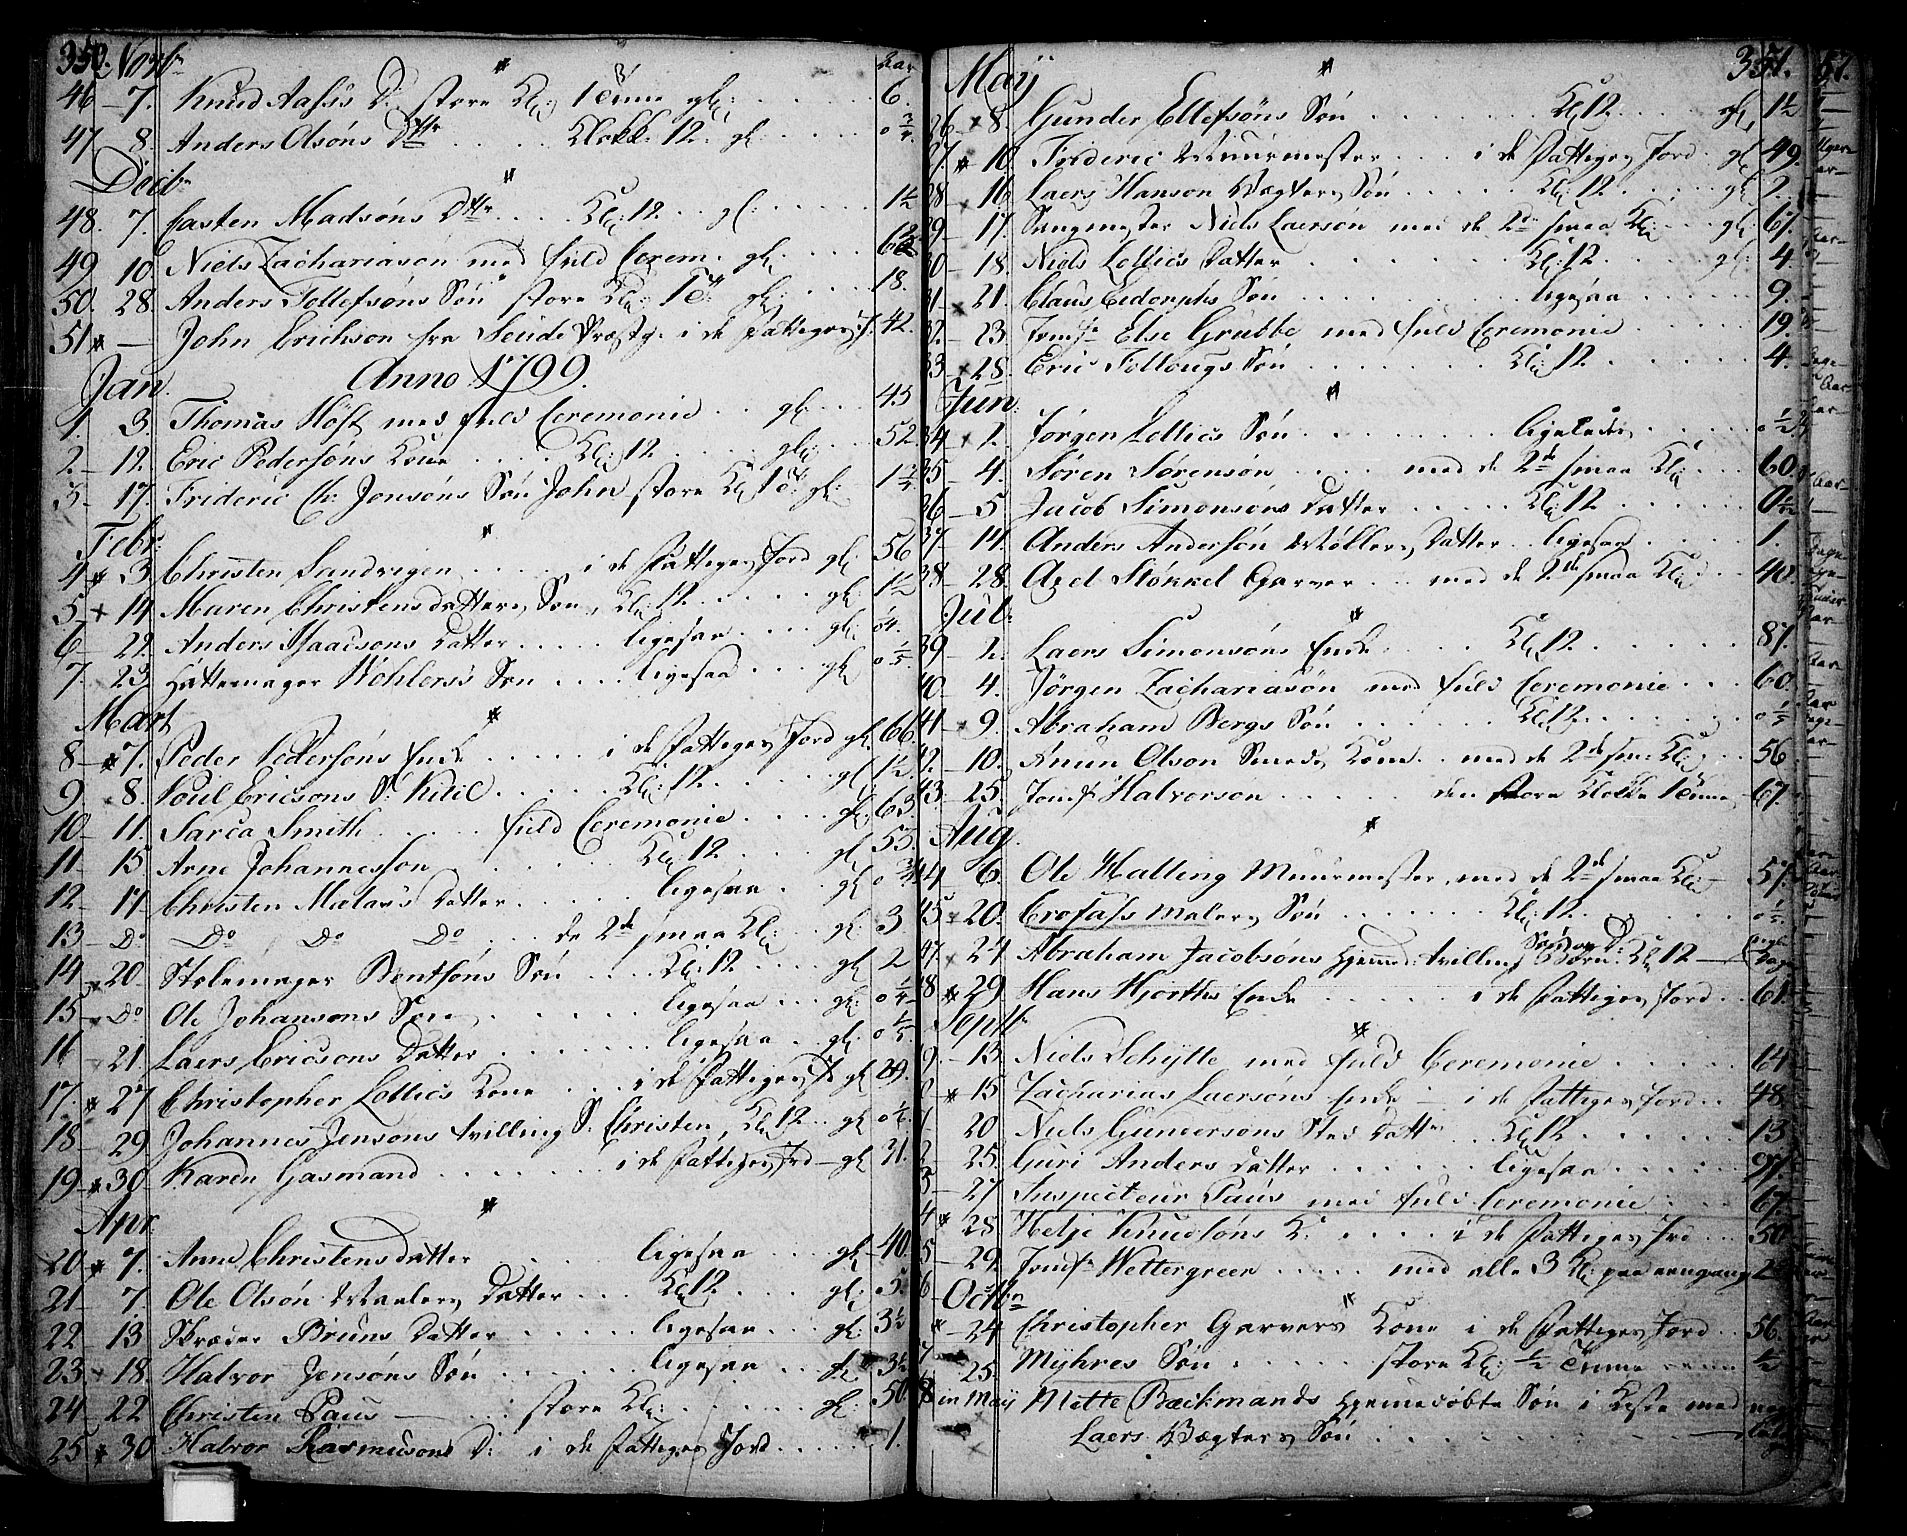 350. Novbr Aar
46 — 7. Knud Aass's D. store Kl. 1 Time gl: 6.
47 8. Anders Olsöns Dttr Klokk: 12. gl: 0 3/4
Decbr
48. 7. Casten Madsöns Dttr Kl: 12 gl: 1½
49 10. Niels Zachariasön med fuld Cerem. gl: 62
50. 28. Anders Tollefsöns Sön store Kl: 1 T. gl: 18.
51 * — John Erichson fra Seude Præstg: i de Fattiges J. 42.
Jan Anno 1799.
1. 3. Thomas Höst med fuld Ceremonie gl: 45
2. — 12. Eric Pedersöns Kone Kl: 12 gl: 52
3 — 17. Frideric Ch: Jonsöns Sön John store Kl. 1 T. gl: 1¾
Febr:
4 * 3 Christen Sandvigen i de Fattiges Jord gl: 56
5 + 14 Maren Christensdatters Sön, Kl: 12 gl: 1½
6 — 22. Anders Isaacsons Datter ligesaa gl: 04.
7. 23 Hattemager Wöhlers's Sön ligesaa gl: 0 1/5
Mart
8 — * 7. Peder Pedersöns Enke i de Fattiges Jord gl. 66
9 8. Poul Ericsons S. Kitil Kl: 12 gl. 1½
10 — 11. Sarca Smith fuld Ceremonie gl: 63
11 15 Arne Johannesson Kl: 12 gl: 55.
12 — 17 Christen Malar's Datter ligesaa gl: 0 3/4
13 — Do Do Do Do de 2de smaa Kl: gl: 3
14 × 20 Stolemager Bentsöns Sön Kl: 12 gl: 2
15 — Do Ole Johansons Sön ligesaa gl: 0 ¼
16 21. Laers Ericsons Datter ligesaa gl: 0 1/5
17. * 27 Christopher Lollics Kone i de Fattiges J. gl: 29.
18 — 29 Johannes Jensons tvilling S. Christen, Kl: 12 gl: 0 ½
19 — * 30 Karen Gasmand i de Fattiges Jrd — gl: 31.
Apr:
20 * 7. Anne Christensdatter ligesaa gl: 40.
21 — 7. Ole Olsön Malers Datter Kl: 12 gl: 5.
22 13 Skræder Bruns Datter ligesaa gl: 3½
23 × 18. Halvor Jensöns Sön ligesaa gl: 3½
24 — 22 Christen Paus — store Kl: gl: 50
25 * 30 Halvor Rasmusons D: i de Fattiges Jord 1.
May 351.
26 × 8. Gunder Ellefsöns Sön Kl: 12 gl, 1½
27 * 10. Frideric Muurmester i de Fattiges Jord gl: 49.
28 — 16. Laers Hanson Vægters Sön Kl: 12 gl: 2.
29 — 17. Sangmester Niels Laerson med de 2de smaa Kl: gl: 67.
30 — 18. Niels Lollics Datter Kl: 12 gl: 4.
31 × 21. Claus Eidorphs Sön ligesaa 9.
32. — 23 Jomfr Else Grubbe med fuld Ceremonie 19.
33 × 28. Eric Follougs Sön Kl: 12 4.
Jun:
34 × 1. Jörgen Lollics Sön ligeledes 0 ½
35 4. Sören Sörensön med de 2de smaa Kl: 60
36 — 5 Jacob Simonsöns Datter Kl: 12
37 — 14. Anders Andersön Möllers Datter ligesaa 1.
38 — 28. Axel Stökkel Garver med de 2de smaa Kl: 40.
Jul:
39 — 2. Laers Simonsöns Enke Kl: 12 87.
40. 4. Jörgen Zachariasön med fuld Ceremonie 60.
41 × 9. Abraham Bergs Sön Kl: 12 0 ½
42. — 10. Anun Olson Smeds Kone med de 2de sm: Kl: 56
43 — 25. Jomf: Halvorsen den store Klokke 1 Time 67.
Aug.
44 6. Ole Halling Muurmester, med de 2de smaa Kl: 57.
45 × 20. Crofass Malers Sön Kl: 12
47. × 24 Abraham Jacobsöns Hjemmed: tvilling Börn: Sön og D: Kl: 12 Dage
48 * 29 Hans Hjorths Enke i de Fattiges Jord 61.
Septbr
9. — 13 Niels Schytte med fuld Ceremonie 64
* 15 Zacharias Laersöns Enke — i de Fattiges Jord 48.
20 Niels Gundersöns Sted Dattr Kl: 12 13
2 — 25. Guri Anders Datter ligesaa 97.
3 — 27 Inspecteur Paus med fuld Ceremonie 67.
4 * 28 Helje Knudsöns K. i de Fattiges Jrd 50
5 — 29. Jomfr Wettergreen med alle 3 Kl: paa eengang 2
Octbr
* 24 Christopher Garvers Kone i de Fattiges Jord 56.
7 25. Myhres Sön store Kl: ½ Time ½
8 in May Mette Bæckmands Hjemmedöbte Sön i Kiste med
Laers Vægters Sön